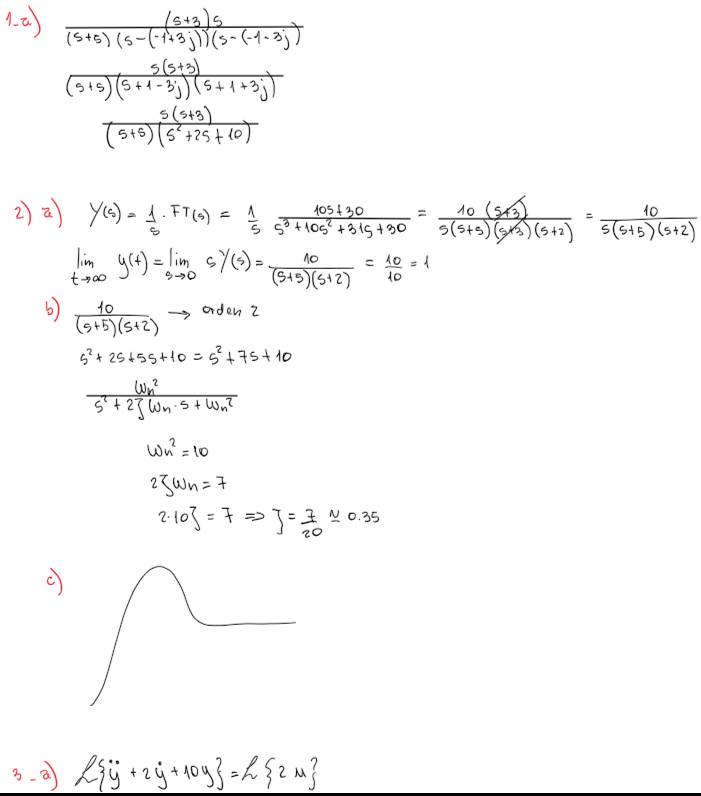 1-a) (s+3)s / (s+5)(s-(-1+3j))(s-(-1-3j))
s(s+3) / (s+5)(s+1-3j)(s+1+3j)
s(s+3) / (s+5)(s²+2s+10)
2) a) Y(s) = 1/s · FT(s) = 1/s 10s+30 / s³+10s²+31s+30 = 10(s+3) / s(s+5)(s+3)(s+2) = 10 / s(s+5)(s+2)
lim t→∞ y(t) = lim s→0 sY(s) = 10 / (s+5)(s+2) = 10/10 = 1
b) 10 / (s+5)(s+2) → orden 2
s²+2s+5s+10 = s²+7s+10
ωn² / s²+2ζωn·s+ωn²
ωn² = 10
2ζωn = 7
2·10ζ = 7 => ζ = 7/20 ≃ 0.35
c)
3-a) ℒ{ÿ+2ẏ+10y} = ℒ{2u}